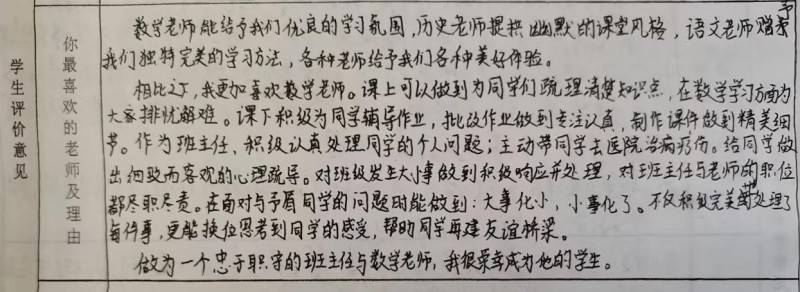 学生评价意见
你最喜欢的老师及理由
数学老师能给予我们优良的学习氛围,历史老师提供幽默的课堂风格,语文老师赠予
我们独特完美的学习方法,各种老师给予我们各种美好体验。
相比之下,我更加喜欢数学老师。课上可以做到为同学们疏理清楚知识点,在数学学习方面为
大家排忧解难。课下积级为同学辅导作业,批改作业做到专注认真,制作课件做到精美细
节。作为班主任、积级认真处理同学的个人问题;主动带同学去医院治病疗伤。给同学做
出细致而客观的心理疏导。对班级发生大小事做到积级响应并处理,对班主任与老师的职位
都尽职尽责。在面对与矛盾同学的问题时能做到:大事化小,小事化了。不仅积级完美的处理了
每件事,更能换位思考到同学的感受,帮助同学再建友谊桥梁。
做为一个忠于职守的班主任与数学老师,我很荣幸成为他的学生。